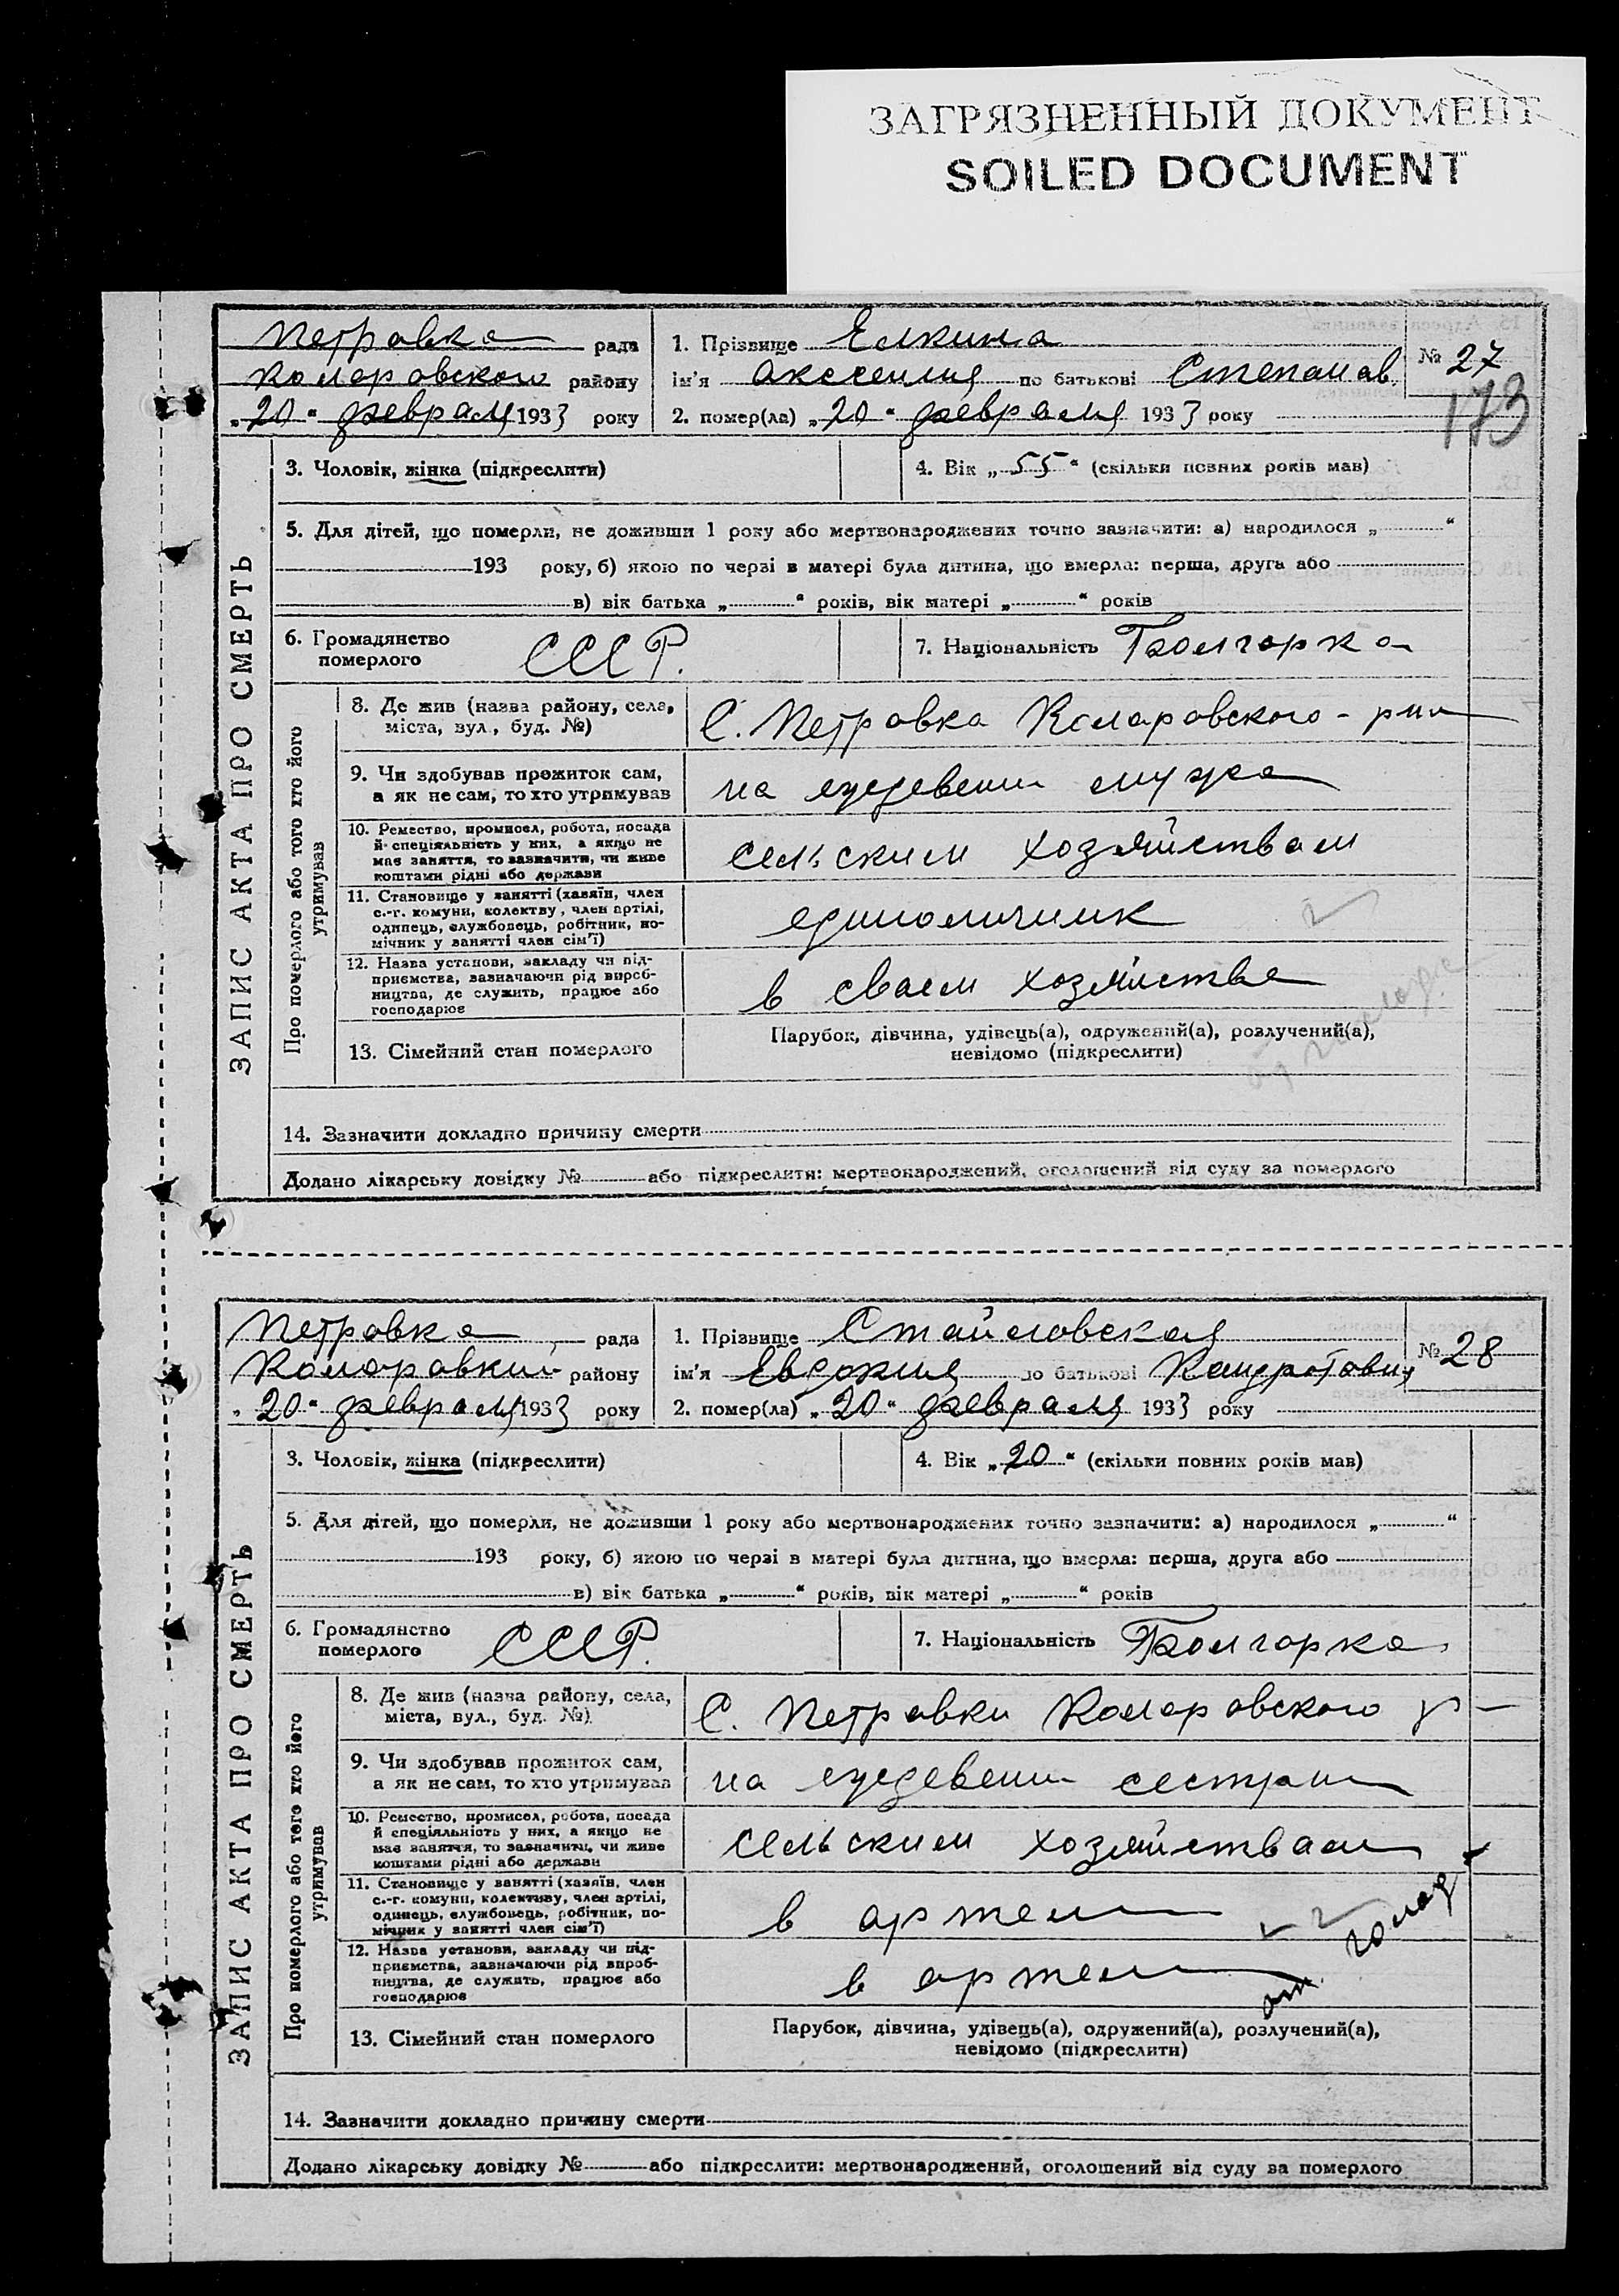 ЗАГРЯЗНЕННЫЙ ДОКУМЕНТ
SOILED DOCUMENT
ЗАПИС АКТА ПРО СМЕРТЬ
Петровка рада
Коларовского району
„20“ февраля 1933 року
1. Прізвище Елкина
ім'я Акссения по батькові Степанав.
2. помер(ла) „20“ февраля 1933 року
№ 27
173
3. Чоловік, жінка (підкреслити)
4. Вік „55“ (скільки повних років мав)
5. Для дітей, що померли, не доживши 1 року або мертвонароджених точно зазначити: а) народилося „ “
193 року, б) якою по черзі в матері була дитина, що вмерла: перша, друга або
в) вік батька „ “ років, вік матері „ “ років
6. Громадянство
померлого
СССР.
7. Національність Болгарка
Про померлого або того хто його
утримував
8. Де жив (назва району, села,
міста, вул., буд. №)
С. Петровка Коларовского р-на
9. Чи здобував прожиток сам,
а як не сам, то хто утримував
на ждевении мужа
10. Ремество, промисел, робота, посада
й спеціяльність у них, а якщо не
має заняття, то зазначити, чи живе
коштами рідні або держави
сельским хозяйствам
11. Становище у занятті (хазяїн, член
с.-г. комуни, колектву, член артілі,
одинець, службовець, робітник, по-
мічник у занятті член сім'ї)
единоличник
12. Назва установи, закладу чи під-
приємства, зазначаючи рід вироб-
ництва, де служить, працює або
господарює
в сваем хозяйстве
13. Сімейний стан померлого
Парубок, дівчина, удівець(а), одружений(а), розлучений(а),
невідомо (підкреслити)
14. Зазначити докладно причину смерти
Додано лікарську довідку № або підкреслити: мертвонароджений, оголошений від суду за померлого
ЗАПИС АКТА ПРО СМЕРТЬ
Петровка рада
Коларовкий району
„20“ февраля 1933 року
1. Прізвище Стайловская
ім'я Евдокия по батькові Кандротович
2. помер(ла) „20“ февраля 1933 року
№ 28
3. Чоловік, жінка (підкреслити)
4. Вік „20“ (скільки повних років мав)
5. Для дітей, що померли, не доживши 1 року або мертвонароджених точно зазначити: а) народилося „ “
193 року, б) якою по черзі в матері була дитина, що вмерла: перша, друга або
в) вік батька „ “ років, вік матері „ “ років
6. Громадянство
померлого
СССР.
7. Національність Болгарка
Про померлого або того хто його
утримував
8. Де жив (назва району, села,
міста, вул., буд. №)
С. Петровки Коларовского р
9. Чи здобував прожиток сам,
а як не сам, то хто утримував
на сестри
10. Ремество, промисел, робота, посада
й спеціяльність у них, а якщо не
має заняття, то зазначити, чи живе
коштами рідні або держави
сельским хозяйствам
11. Становище у занятті (хазяїн, член
с.-г. комуни, колективу, член артілі,
одинець, службовець, робітник, по-
мічник у занятті член сім'ї)
в артели
12. Назва установи, закладу чи під-
приємства, зазначаючи рід вироб-
ництва, де служить, працює або
господарює
в артели
от голод
13. Сімейний стан померлого
Парубок, дівчина, удівець(а), одружений(а), розлучений(а),
невідомо (підкреслити)
14. Зазначити докладно причину смерти
Додано лікарську довідку № або підкреслити: мертвонароджений, оголошений від суду за померлого